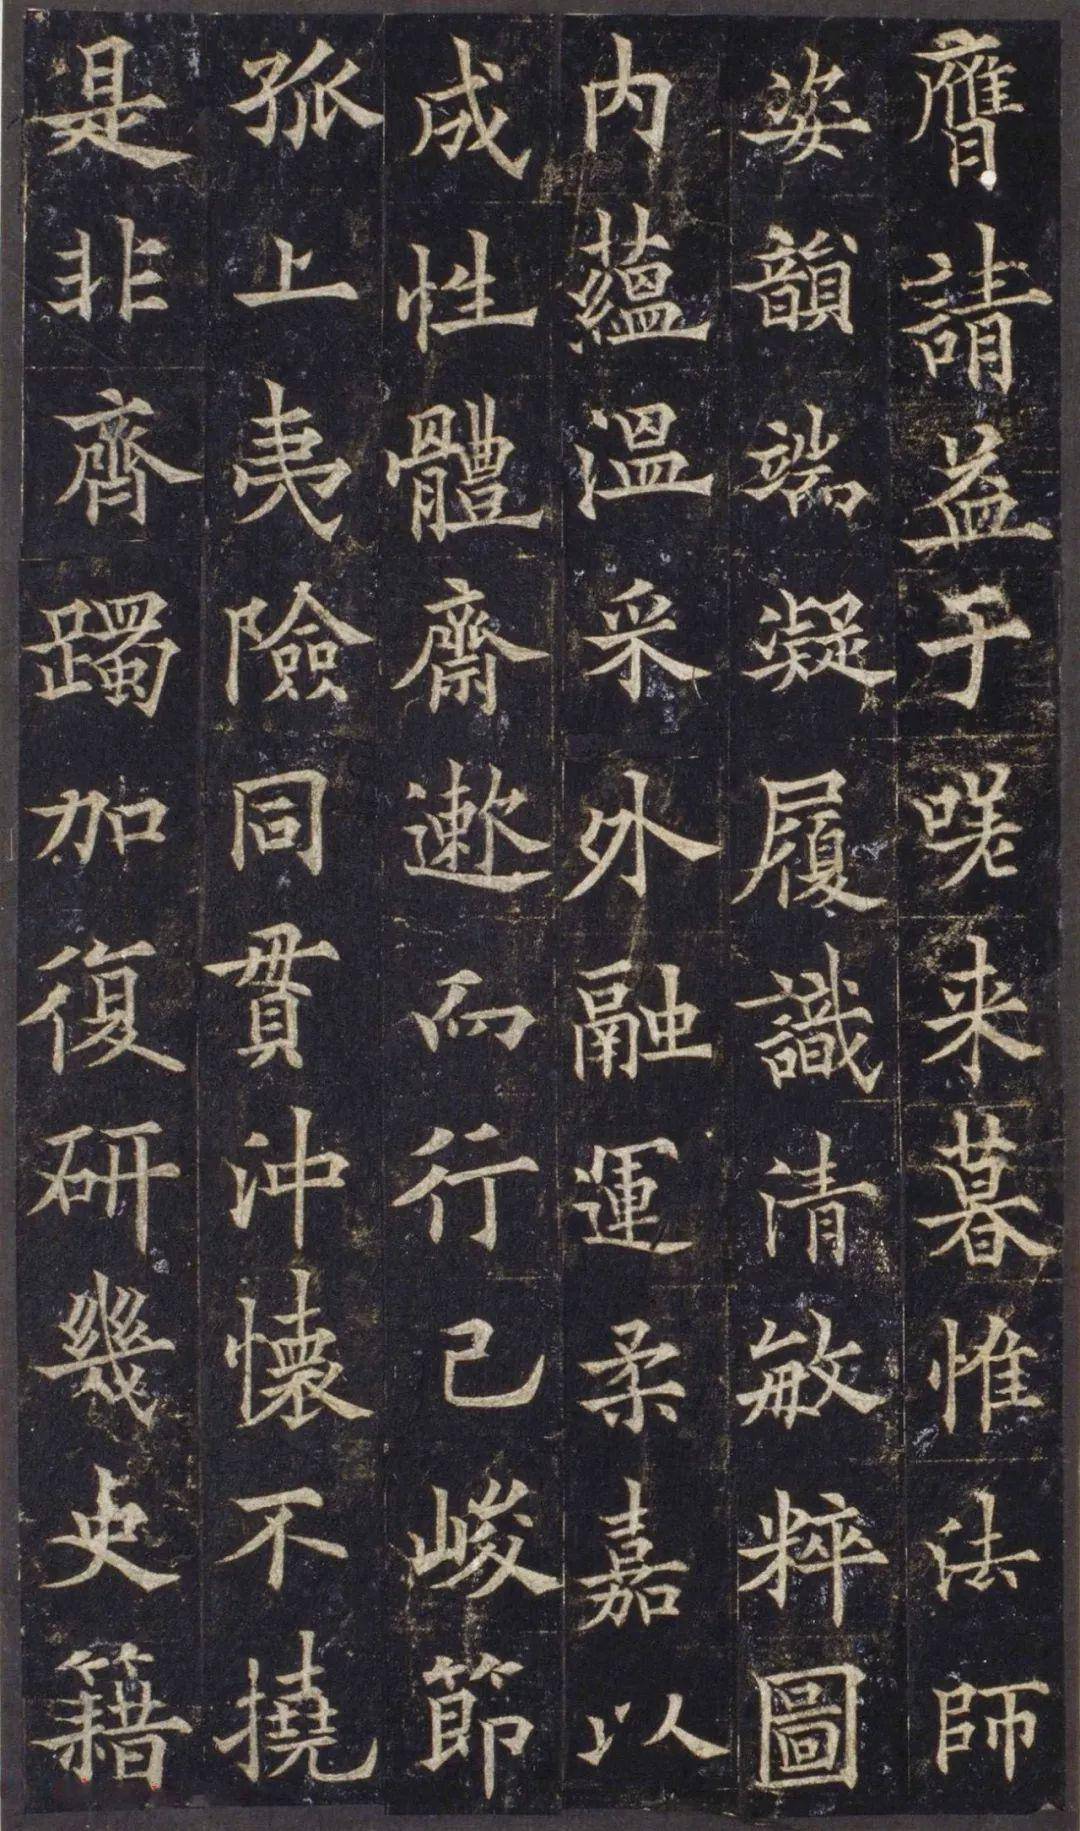 膺請益于嗟来暮惟法師
姿韻端凝履識清敏粹圖
内蘊温采外融運柔嘉以
成性體齋遬而行己峻節
孤上夷險同貫沖懷不撓
是非齊躅加復研幾史籍